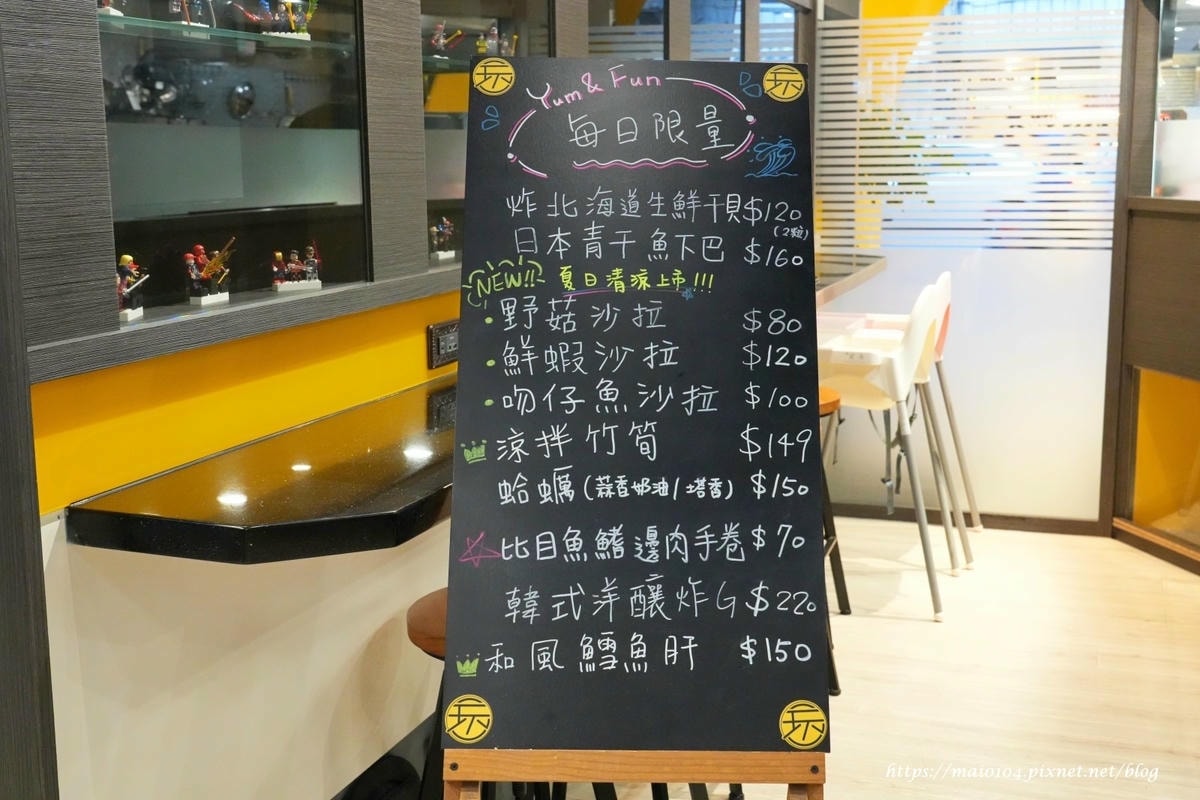 玩
玩
Yum & Fun
每日限量
炸北海道生鮮干貝 $120
(2粒)
日本青干魚下巴 $160
NEW!! 夏日清涼上市!!!
• 野菇沙拉 $80
• 鮮蝦沙拉 $120
• 吻仔魚沙拉 $100
涼拌竹筍 $149
蛤蠣(蒜香奶油/塔香) $150
比目魚鰭邊肉手卷 $70
韓式洋釀炸G $220
和風鱈魚肝 $150
玩
玩
https://maio104.pixnet.net/blog